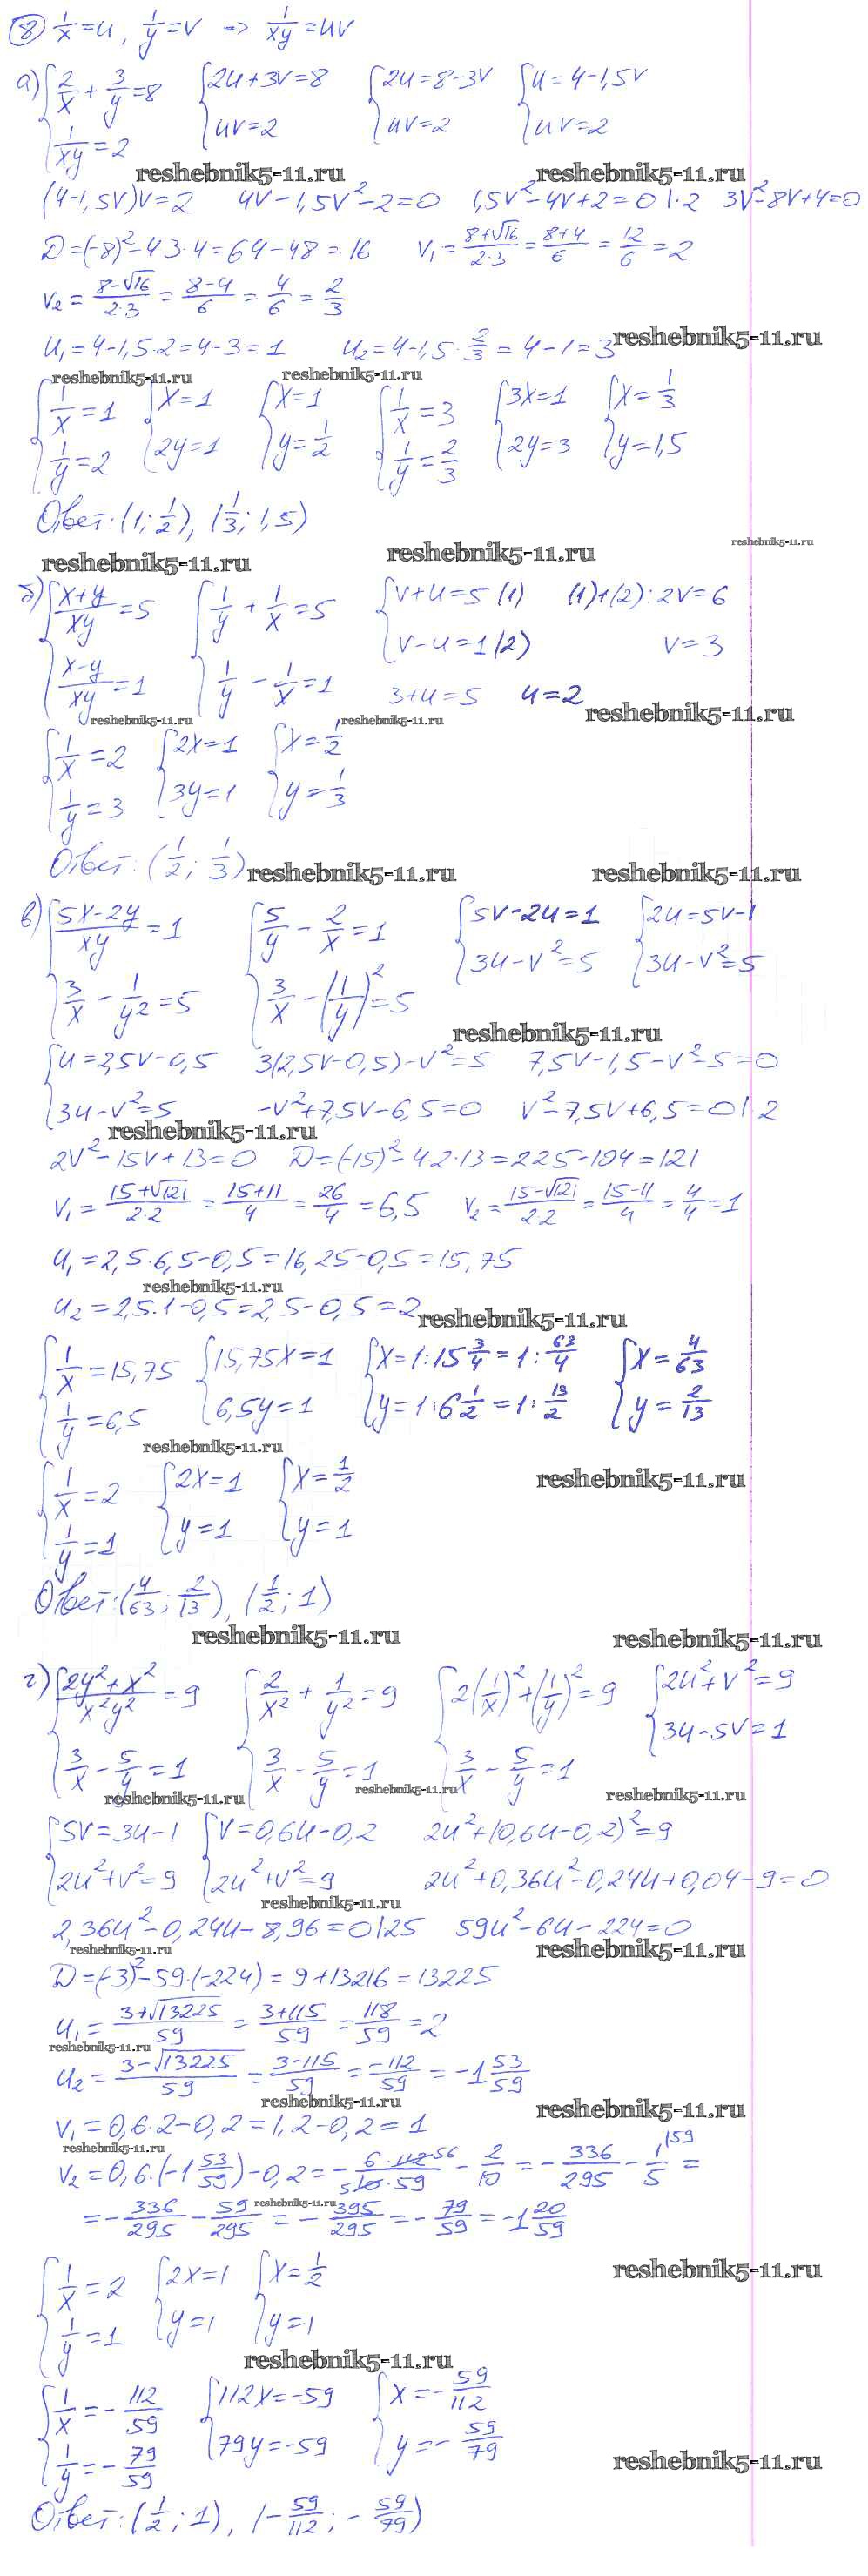 ⑧ 1/x=u, 1/y=v => 1/xy=uv
а) {2/x + 3/y =8 {2u+3v=8 {2u=8-3v {u=4-1,5v
{1/xy =2 {uv=2 {uv=2 {uv=2
reshebnik5-11.ru reshebnik5-11.ru
(4-1,5v)v=2 4v-1,5v²-2=0 1,5v²-4v+2=0 |·2 3v²-8v+4=0
D=(-8)²-4·3·4=64-48=16 v₁=(8+√16)/(2·3)=(8+4)/6=12/6=2
v₂=(8-√16)/(2·3)=(8-4)/6=4/6=2/3
u₁=4-1,5·2=4-3=1 u₂=4-1,5·2/3=4-1=3 reshebnik5-11.ru
reshebnik5-11.ru reshebnik5-11.ru
{1/x=1 {x=1 {x=1 {1/x=3 {3x=1 {x=1/3
{1/y=2 {2y=1 {y=1/2 {1/y=2/3 {2y=3 {y=1,5
Ответ: (1; 1/2), (1/3; 1,5)
reshebnik5-11.ru
reshebnik5-11.ru reshebnik5-11.ru
б) {(x+y)/xy=5 {1/y + 1/x=5 {v+u=5 (1) (1)+(2): 2v=6
{(x-y)/xy=1 {1/y - 1/x=1 {v-u=1 (2) v=3
3+u=5 u=2
reshebnik5-11.ru reshebnik5-11.ru reshebnik5-11.ru
{1/x=2 {2x=1 {x=1/2
{1/y=3 {3y=1 {y=1/3
Ответ: (1/2; 1/3) reshebnik5-11.ru reshebnik5-11.ru
в) {(5x-2y)/xy=1 {5/y - 2/x=1 {5v-2u=1 {2u=5v-1
{3/x - 1/y²=5 {3/x - (1/y)²=5 {3u-v²=5 {3u-v²=5
reshebnik5-11.ru
{u=2,5v-0,5 3(2,5v-0,5)-v²=5 7,5v-1,5-v²-5=0
{3u-v²=5 -v²+7,5v-6,5=0 v²-7,5v+6,5=0 |·2
reshebnik5-11.ru
2v²-15v+13=0 D=(-15)²-4·2·13=225-104=121
v₁=(15+√121)/(2·2)=(15+11)/4=26/4=6,5 v₂=(15-√121)/(2·2)=(15-11)/4=4/4=1
u₁=2,5·6,5-0,5=16,25-0,5=15,75
reshebnik5-11.ru
u₂=2,5·1-0,5=2,5-0,5=2 reshebnik5-11.ru
{1/x=15,75 {15,75x=1 {x=1:15 3/4=1:63/4 {x=4/63
{1/y=6,5 {6,5y=1 {y=1:6 1/2=1:13/2 {y=2/13
reshebnik5-11.ru
{1/x=2 {2x=1 {x=1/2 reshebnik5-11.ru
{1/y=1 {y=1 {y=1
Ответ: (4/63; 2/13), (1/2; 1)
reshebnik5-11.ru reshebnik5-11.ru
г) {(2y²+x²)/x²y²=9 {2/x² + 1/y²=9 {2(1/x)²+(1/y)²=9 {2u²+v²=9
{3/x - 5/y=1 {3/x - 5/y=1 {3/x - 5/y=1 {3u-5v=1
reshebnik5-11.ru reshebnik5-11.ru reshebnik5-11.ru
{5v=3u-1 {v=0,6u-0,2 2u²+(0,6u-0,2)²=9
{2u²+v²=9 {2u²+v²=9 2u²+0,36u²-0,24u+0,04-9=0
reshebnik5-11.ru
2,36u²-0,24u-8,96=0 |·25 59u²-6u-224=0
reshebnik5-11.ru reshebnik5-11.ru
D=(-3)²-59·(-224)=9+13216=13225
u₁=(3+√13225)/59=(3+115)/59=118/59=2
reshebnik5-11.ru
u₂=(3-√13225)/59=(3-115)/59=-112/59=-1 53/59
reshebnik5-11.ru reshebnik5-11.ru
v₁=0,6·2-0,2=1,2-0,2=1
reshebnik5-11.ru
v₂=0,6·(-1 53/59)-0,2=-(6·112 56)/(5 10·59) - 2/10=-336/295 - 1/5 |59 =
=-336/295 - 59/295 = -395/295=-79/59=-1 20/59
reshebnik5-11.ru
{1/x=2 {2x=1 {x=1/2 reshebnik5-11.ru
{1/y=1 {y=1 {y=1
reshebnik5-11.ru
{1/x=-112/59 {112x=-59 {x=-59/112
{1/y=-79/59 {79y=-59 {y=-59/79
reshebnik5-11.ru
Ответ: (1/2; 1), (-59/112; -59/79)